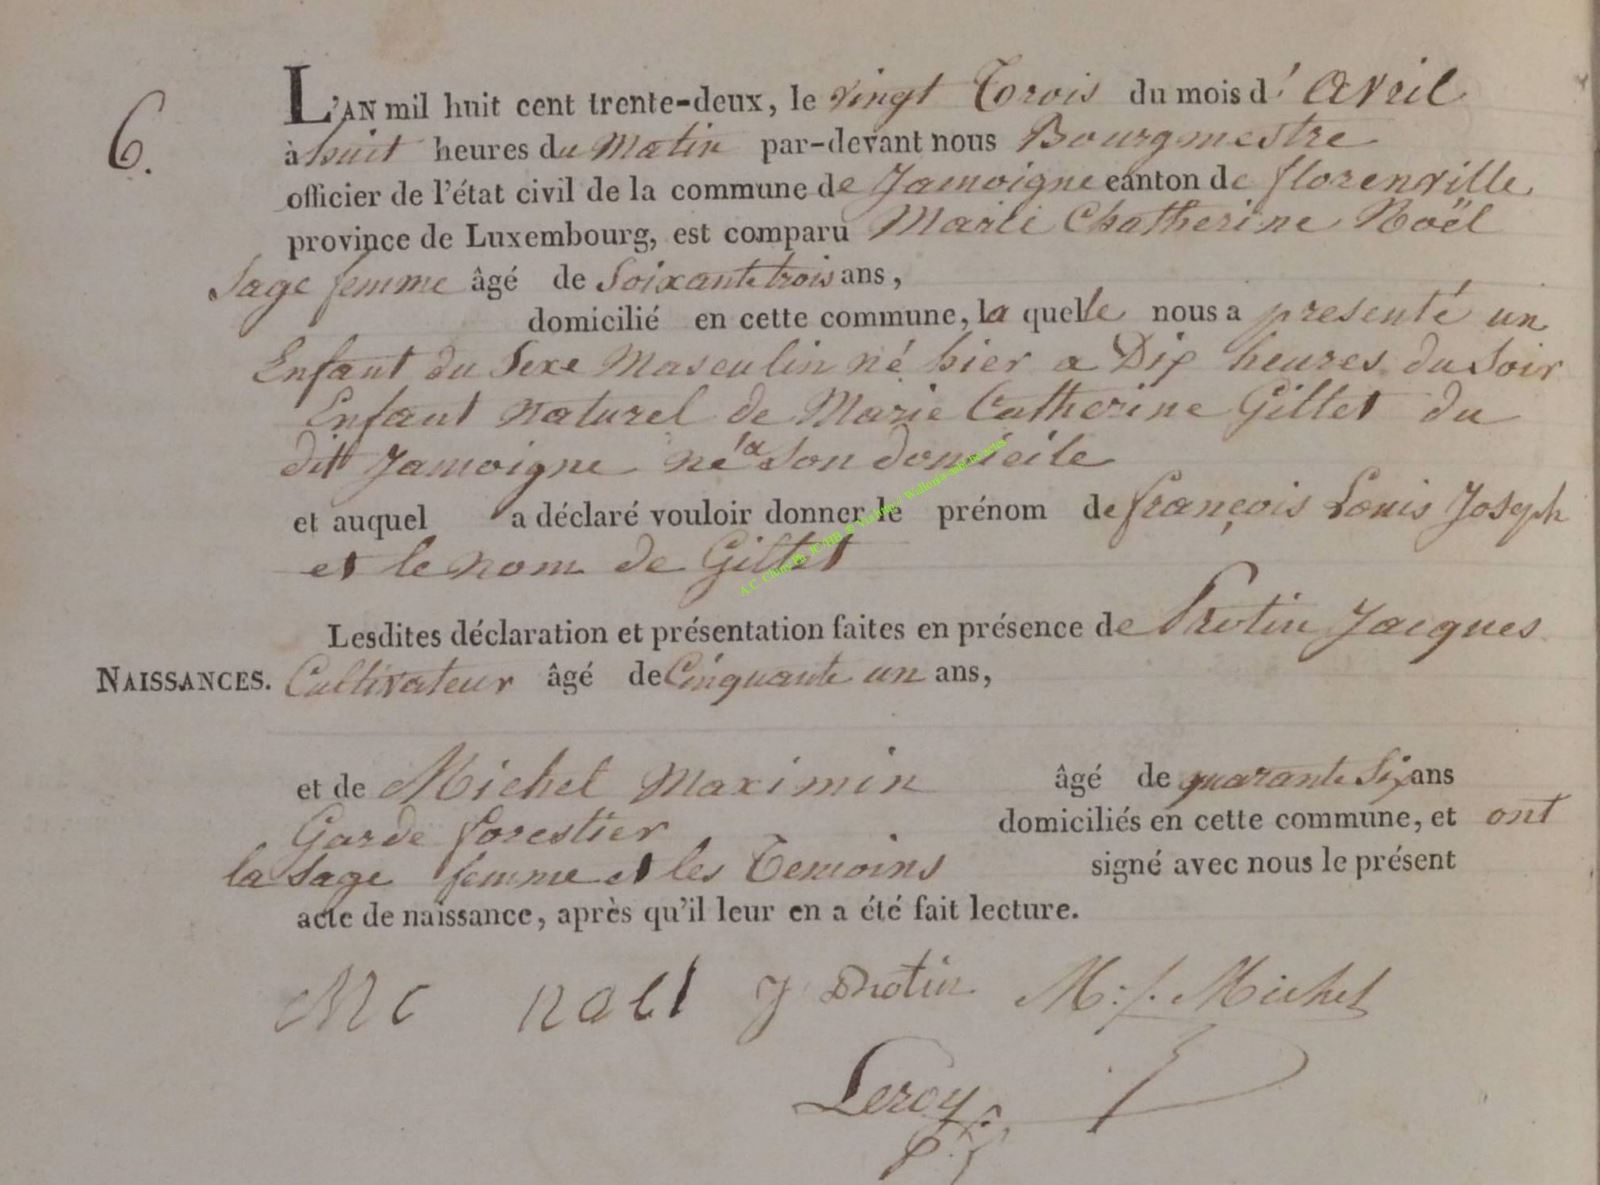 6.
L'AN mil huit cent trente-deux, le vingt Trois du mois d'Avril
à huit heures du Matin par-devant nous Bourgmestre
officier de l'état civil de la commune de Jamoigne canton de florenville
province de Luxembourg, est comparu Marie Chatherine Noël
Sage femme âgé de Soixante trois ans,
domicilié en cette commune, la quelle nous a presenté un
Enfant du Sexe Masculin né hier a Dix heures du Soir
Enfant naturel de Marie Catherine Gillet du
dit Jamoigne né a Son domicile
et auquel a déclaré vouloir donner le prénom de françois Louis Joseph
et le nom de Gillet
Lesdites déclaration et présentation faites en présence de Protin Jacques
NAISSANCES. Cultivateur âgé de Cinquante un ans,
et de Michel Maximin âgé de quarante Six ans
Garde forestier domiciliés en cette commune, et ont
la Sage femme et les Temoins signé avec nous le présent
acte de naissance, après qu'il leur en a été fait lecture.
MC noel J Protin M:f. Michel
Leroy
A.C. Chiny